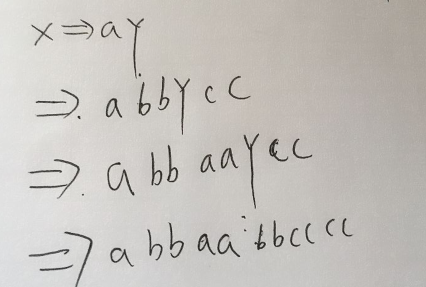 x⇒aY
⇒. abbYcc
⇒. abbaaYcc
⇒abbaabbcccc